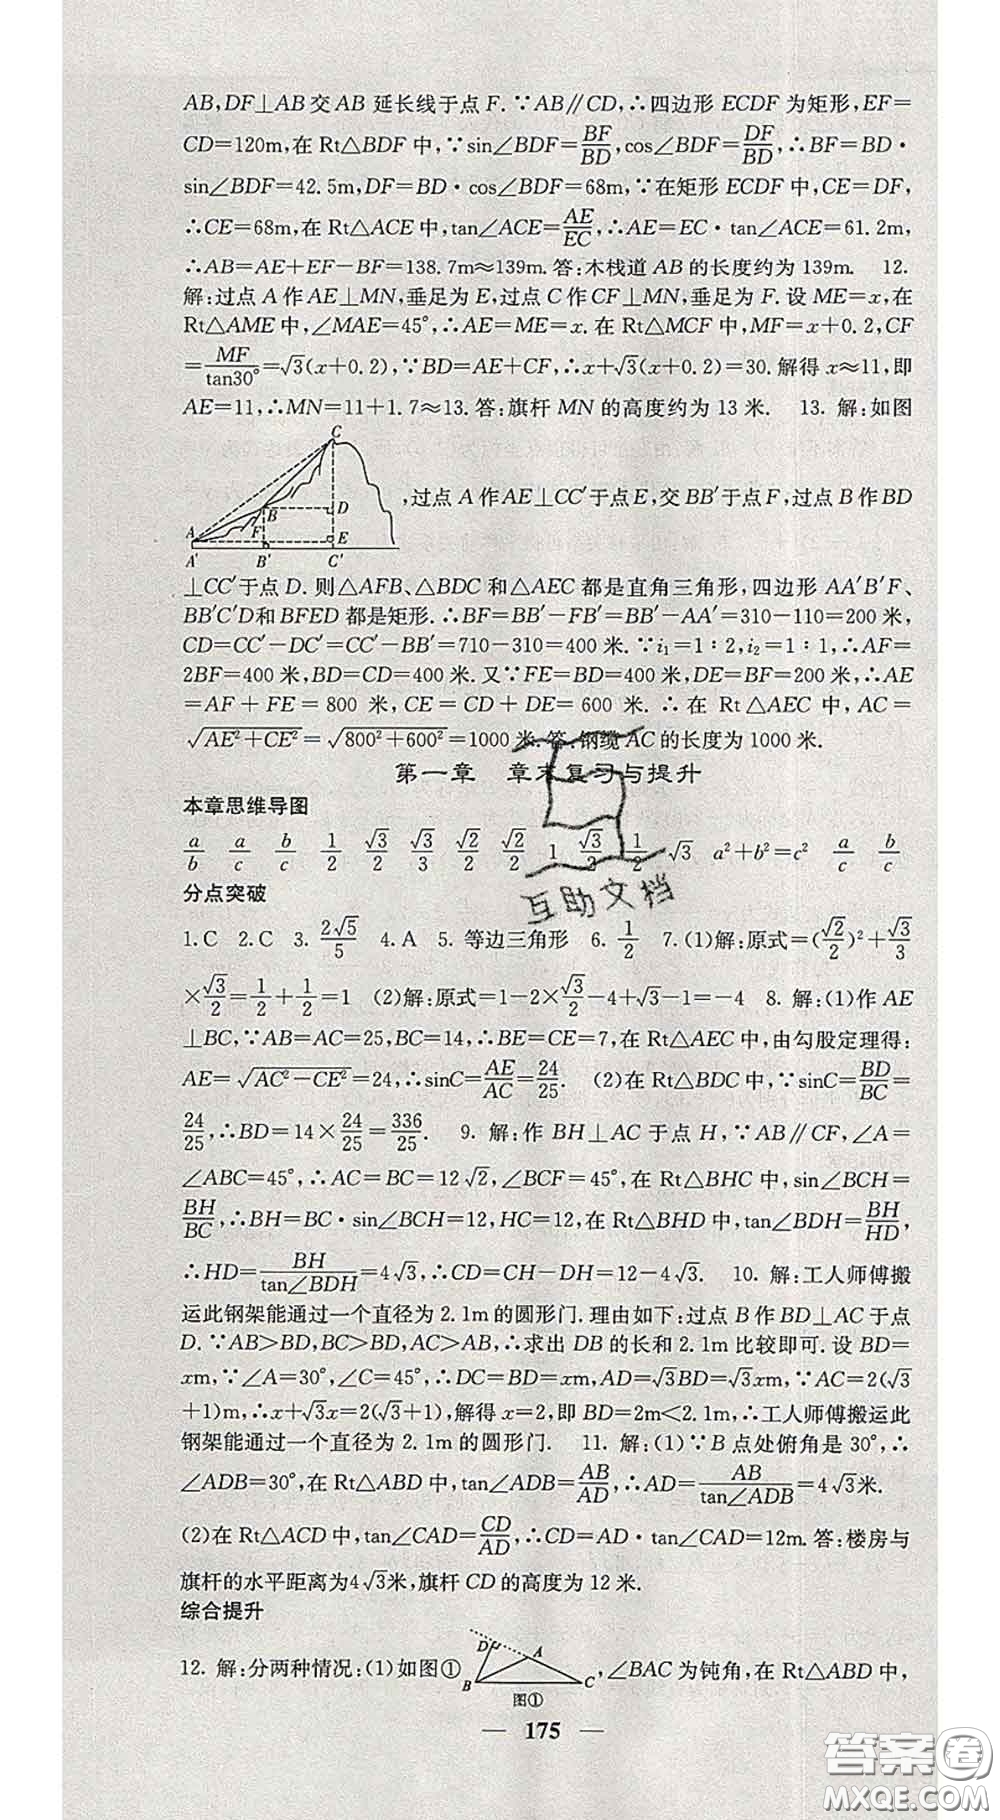 AB,DF⊥AB交AB延长线于点F.∵AB∥CD,∴四边形ECDF为矩形,EF=
CD=120m,在Rt△BDF中,∵sin∠BDF=BF/BD,cos∠BDF=DF/BD,∴BF=BD·
sin∠BDF=42.5m,DF=BD·cos∠BDF=68m,∵在矩形ECDF中,CE=DF,
∴CE=68m,在Rt△ACE中,tan∠ACE=AE/EC,∴AE=EC·tan∠ACE=61.2m,
∴AB=AE+EF-BF=138.7m≈139m.答:木栈道AB的长度约为139m. 12.
解:过点A作AE⊥MN,垂足为E,过点C作CF⊥MN,垂足为F.设ME=x,在
Rt△AME中,∠MAE=45°,∴AE=ME=x.在Rt△MCF中,MF=x+0.2,CF
=MF/tan30°=√3(x+0.2),∵BD=AE+CF,∴x+√3(x+0.2)=30.解得x≈11,即
AE=11,∴MN=11+1.7≈13.答:旗杆MN的高度约为13米. 13. 解:如图
C
B D
A F E
A′ B′ C′
,过点A作AE⊥CC′于点E,交BB′于点F,过点B作BD
⊥CC′于点D.则△AFB、△BDC和△AEC都是直角三角形,四边形AA′B′F、
BB′C′D和BFED都是矩形.∴BF=BB′-FB′=BB′-AA′=310-110=200米,
CD=CC′-DC′=CC′-BB′=710-310=400米.∵i₁=1∶2,i₂=1∶1,∴AF=
2BF=400米,BD=CD=400米.又∵FE=BD=400米,DE=BF=200米,∴AE
=AF+FE=800米,CE=CD+DE=600米.∴在Rt△AEC中,AC=
√(AE²+CE²)=√(800²+600²)=1000米.答:钢缆AC的长度为1000米.
第一章 章末复习与提升
本章思维导图
a/b a/c b/c 1/2 √3/2 √3/3 √2/2 √2/2 1 √3/2 1/2 √3 a²+b²=c² a/c b/c
互助文档
分点突破
1.C 2.C 3. 2√5/5 4.A 5. 等边三角形 6. 1/2 7.(1)解:原式=(√2/2)²+√3/3
×√3/2=1/2+1/2=1 (2)解:原式=1-2×√3/2-4+√3-1=-4 8. 解:(1)作AE
⊥BC,∵AB=AC=25,BC=14,∴BE=CE=7,在Rt△AEC中,由勾股定理得:
AE=√(AC²-CE²)=24,∴sinC=AE/AC=24/25. (2)在Rt△BDC中,∵sinC=BD/BC=
24/25,∴BD=14×24/25=336/25. 9. 解:作BH⊥AC于点H,∵AB∥CF,∠A=
∠ABC=45°,∴AC=BC=12√2,∠BCF=45°,在Rt△BHC中,sin∠BCH=
BH/BC,∴BH=BC·sin∠BCH=12,HC=12,在Rt△BHD中,tan∠BDH=BH/HD,
∴HD=BH/tan∠BDH=4√3,∴CD=CH-DH=12-4√3. 10. 解:工人师傅搬
运此钢架能通过一个直径为2.1m的圆形门.理由如下:过点B作BD⊥AC于点
D.∵AB>BD,BC>BD,AC>AB,∴求出DB的长和2.1m比较即可.设BD=
xm,∵∠A=30°,∠C=45°,∴DC=BD=xm,AD=√3BD=√3xm,∵AC=2(√3
+1)m,∴x+√3x=2(√3+1),解得x=2,即BD=2m<2.1m,∴工人师傅搬运此
钢架能通过一个直径为2.1m的圆形门. 11. 解:(1)∵B点处俯角是30°,∴
∠ADB=30°,在Rt△ABD中,tan∠ADB=AB/AD,∴AD=AB/tan∠ADB=4√3米.
(2)在Rt△ACD中,tan∠CAD=CD/AD,∴CD=AD·tan∠CAD=12m.答:楼房与
旗杆的水平距离为4√3米,旗杆CD的高度为12米.
综合提升
12. 解:分两种情况:(1)如图①,∠BAC为钝角,在Rt△ABD中,
D A
B C
图①
175
答案圈
MXQE.COM